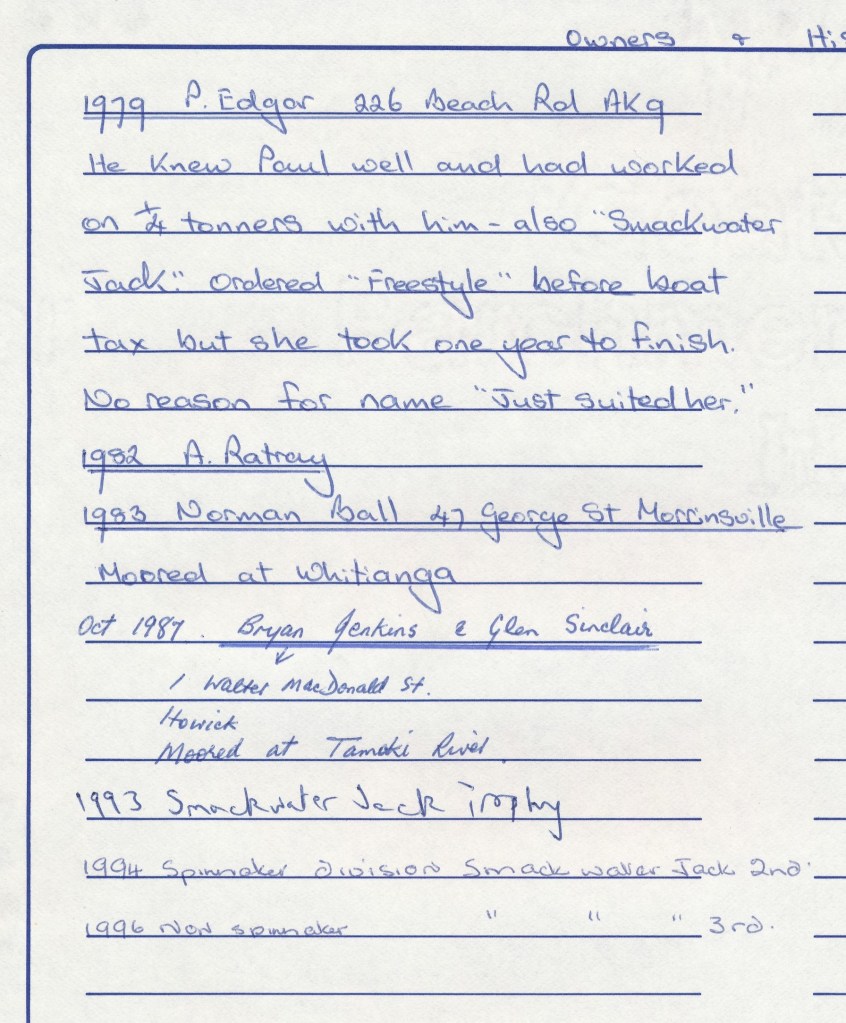 Owners & His
1979 P. Edgar 226 Beach Rd AK9
He knew Paul well and had worked
on ¼ tonners with him - also "Smackwater
Jack". Ordered "Freestyle" before boat
tax but she took one year to finish.
No reason for name "Just suited her."
1982 A. Ratray
1983 Norman Ball 47 George St Morrinsville
Moored at Whitianga
Oct 1987. Bryan Jenkins & Glen Sinclair
1 Walter MacDonald St.
Howick
Moored at Tamaki River.
1993 Smackwater Jack Trophy
1994 Spinnaker division Smack water Jack 2nd.
1996 Non spinnaker " " " 3rd.